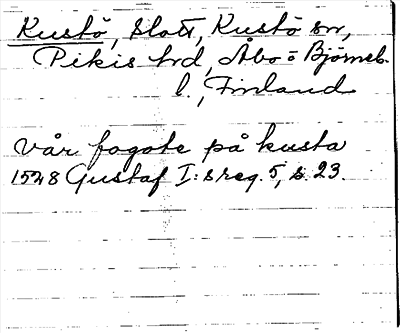 Kustö, Slott, Kustö sn,
Pikis hrd, Åbo o Björneb.
l., Finland
vår fogote på kusta
1528 Gustaf I:s reg. 5, s. 23.